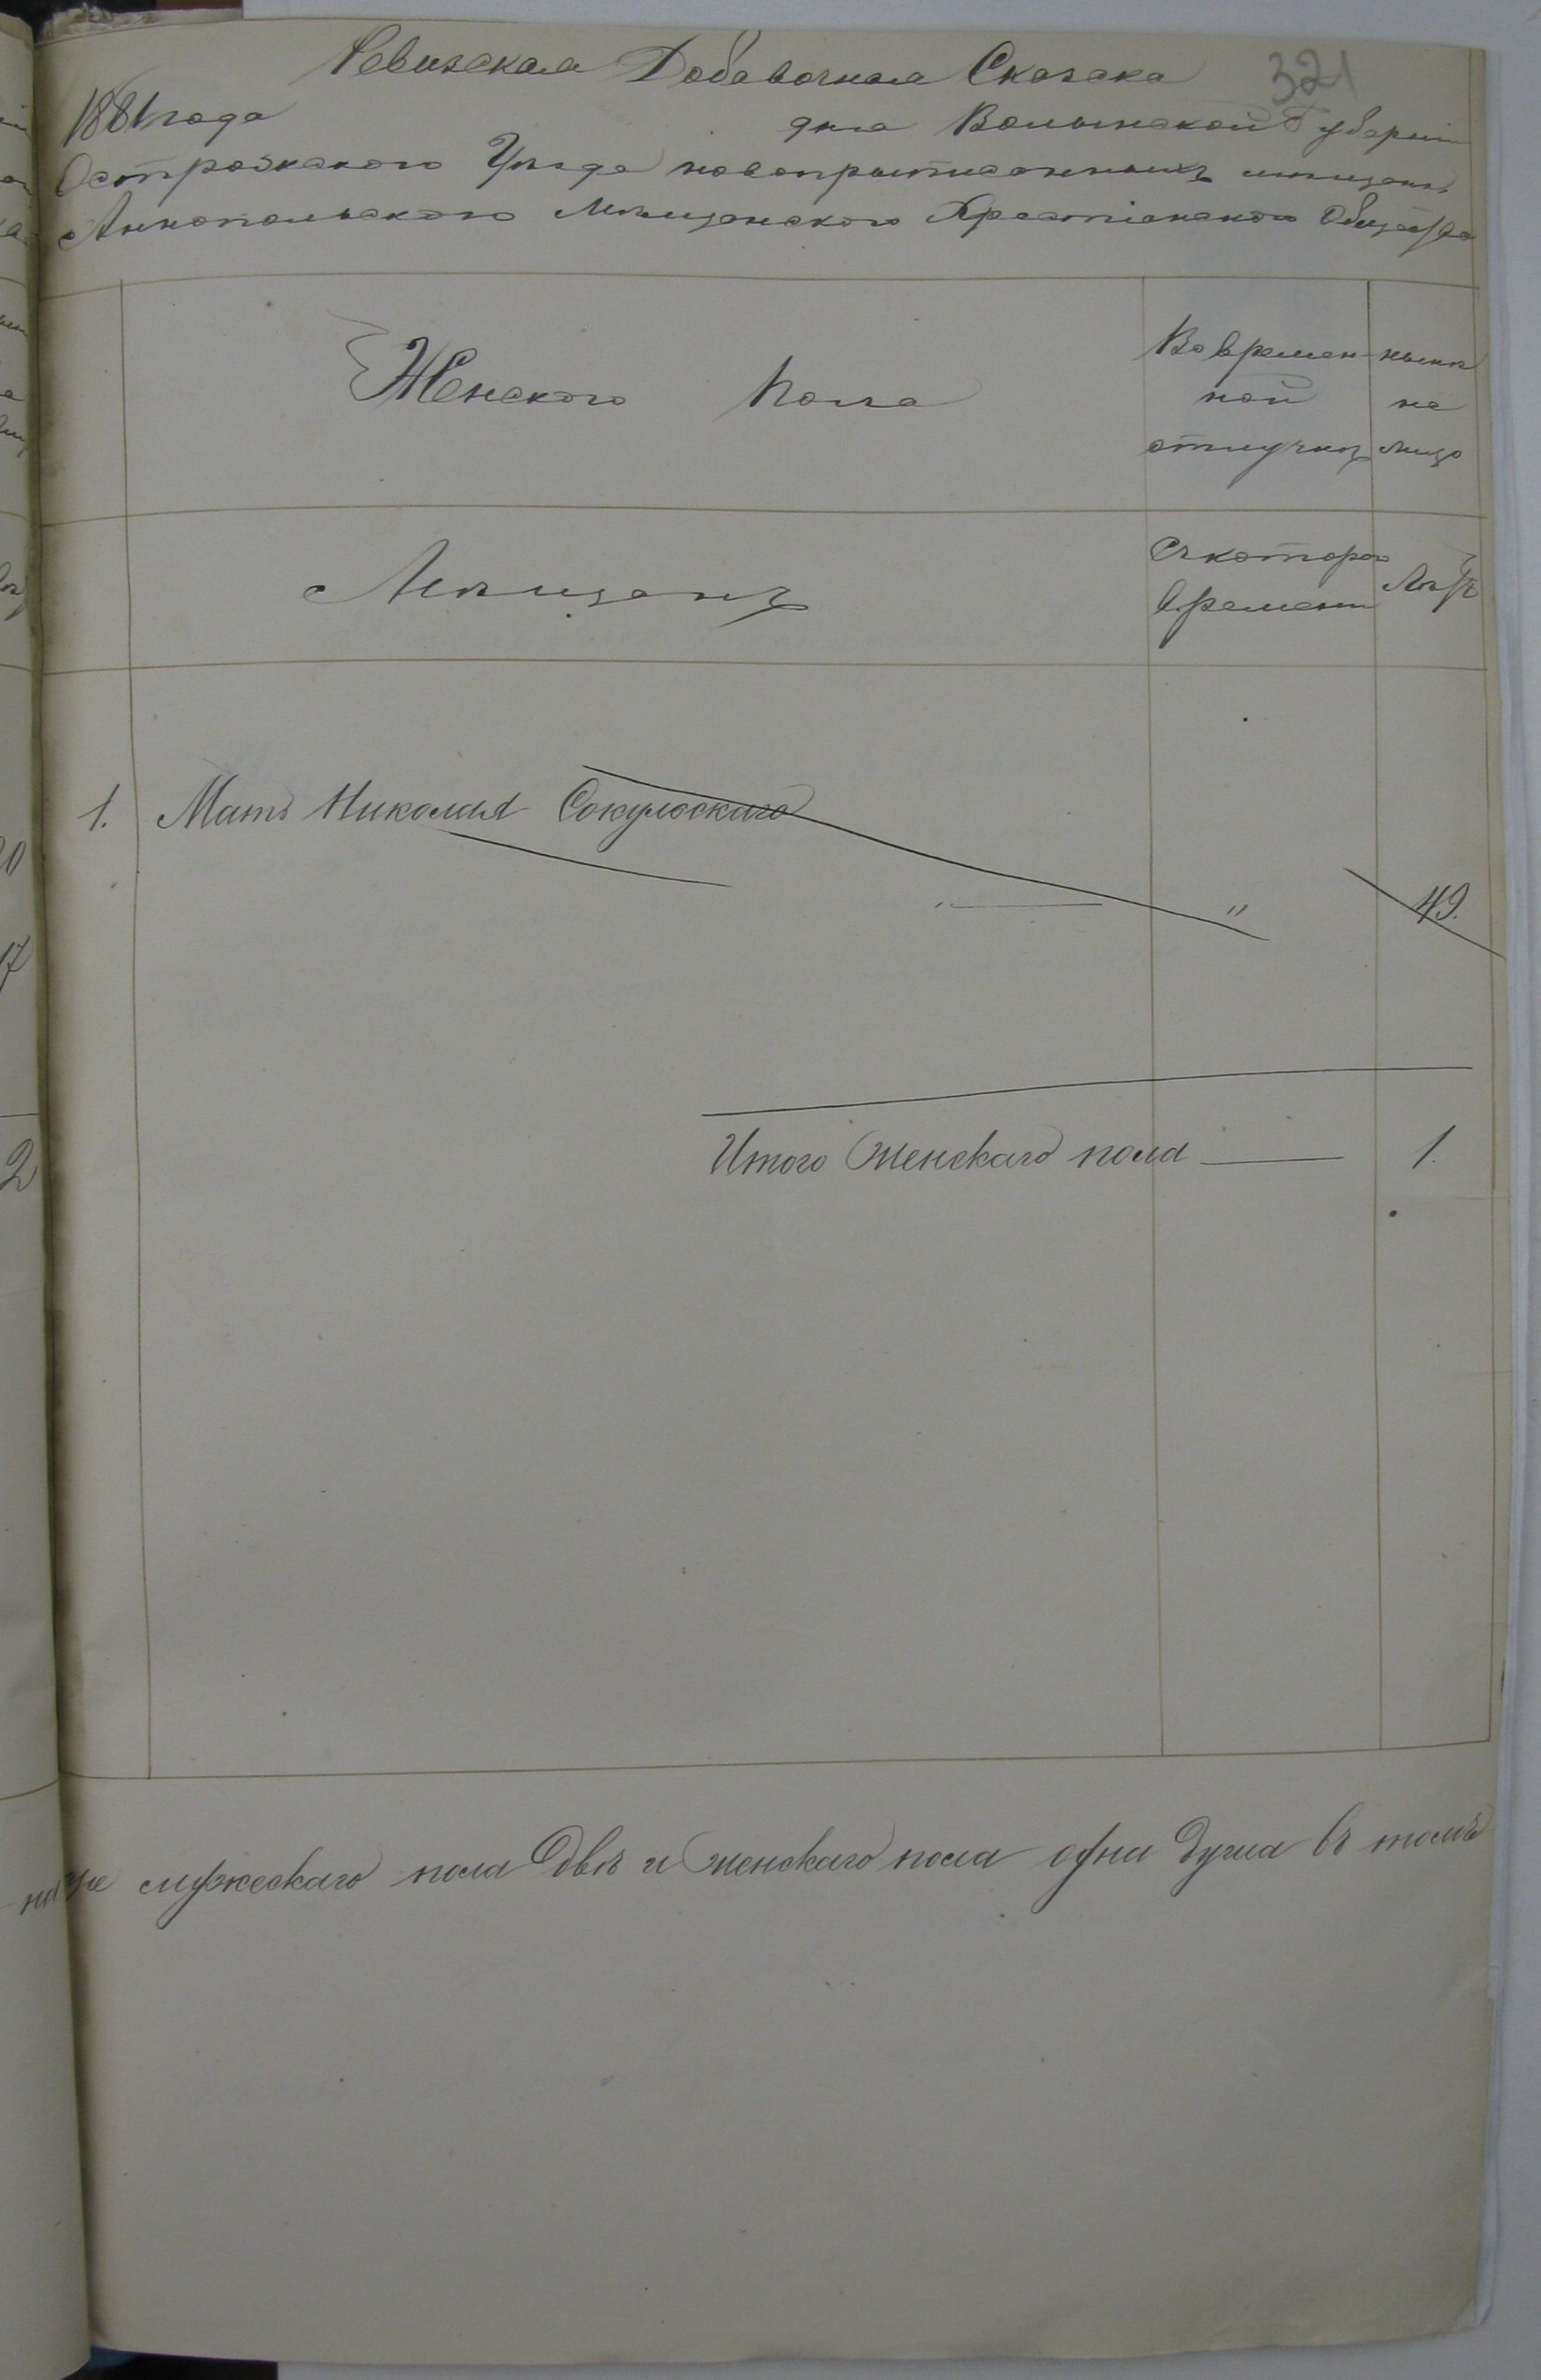 Ревизская Добавочная Сказака 321
1881 года дня Волынской Губерніи
Острозкаго Уѣзда новоприписанныхъ мѣщанъ
Аннопольскаго Мѣщанскаго Хрестіанскаго Общества
Женского Пола
Во времен-
ной
отлучкѣ
нынѣ
на
лицо
Мѣщанъ
Съ котораго
времени
Лѣтъ
1. Мать Николая Сокульскаго " " 49.
Итого женскаго пола 1.
мужескаго пола двѣ и женскаго пола одна душа въ томъ